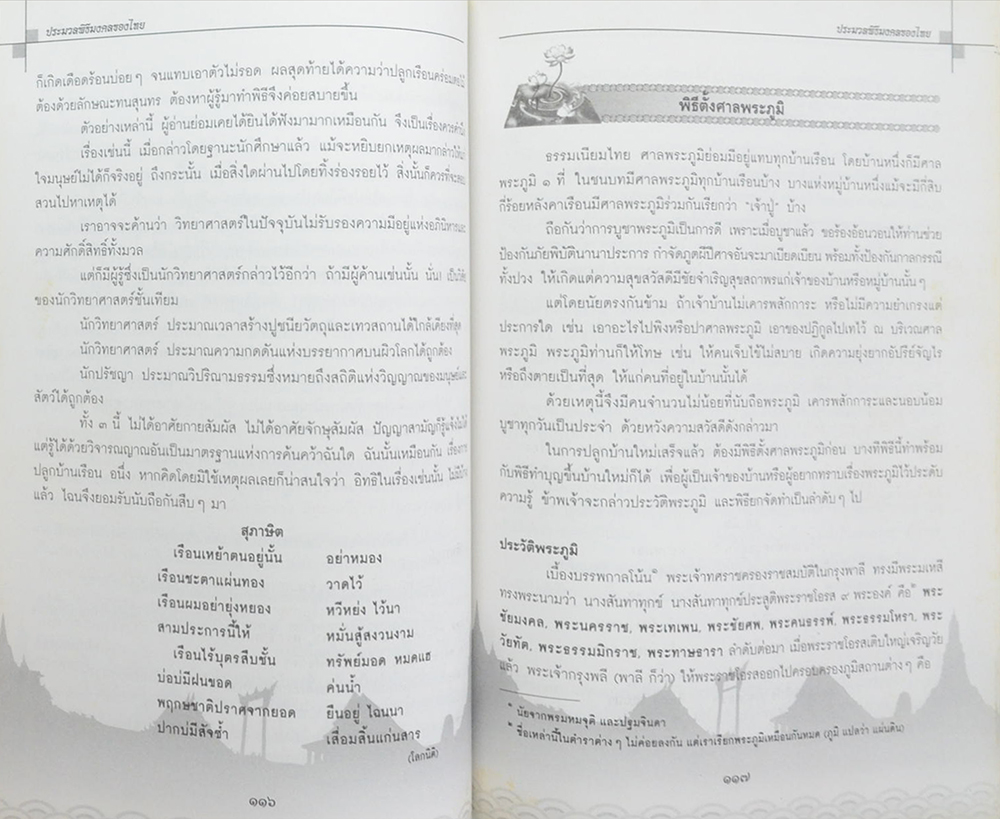 ประมวลพิธีมงคลของไทย
ก็เกิดเดือดร้อนบ่อยๆ จนแทบเอาตัวไม่รอด ผลสุดท้ายได้ความว่าปลูกเรือนคร่อมตอไม้
ต้องด้วยลักษณะทนสุนทร ต้องหาผู้รู้มาทำพิธีจึงค่อยสบายขึ้น
ตัวอย่างเหล่านี้ ผู้อ่านย่อมเคยได้ยินได้ฟังมามากเหมือนกัน จึงเป็นเรื่องควรคำนึง
เรื่องเช่นนี้ เมื่อกล่าวโดยฐานะนักศึกษาแล้ว แม้จะหยิบยกเหตุผลมากล่าวให้
ใจมนุษย์ไม่ได้ก็จริงอยู่ ถึงกระนั้น เมื่อสิ่งใดผ่านไปโดยทิ้งร่องรอยไว้ สิ่งนั้นก็ควรที่จะ
สวนไปหาเหตุได้
เราอาจจะค้านว่า วิทยาศาสตร์ในปัจจุบันไม่รับรองความมีอยู่แห่งอภินิหารและ
ความศักดิ์สิทธิ์ทั้งมวล
แต่ก็มีผู้รู้ซึ่งเป็นนักวิทยาศาสตร์กล่าวไว้อีกว่า ถ้ามีผู้ค้านเช่นนั้น นั่น! เป็น
ของนักวิทยาศาสตร์ชั้นเทียม
นักวิทยาศาสตร์ ประมาณเวลาสร้างปูชนียวัตถุและเทวสถานได้ใกล้เคียงที่สุด
นักวิทยาศาสตร์ ประมาณความกดดันแห่งบรรยากาศบนผิวโลกได้ถูกต้อง
นักปรัชญา ประมาณวิปริณามธรรมซึ่งหมายถึงสถิติแห่งวิญญาณของมนุษย์และ
สัตว์ได้ถูกต้อง
ทั้ง ๓ นี้ ไม่ได้อาศัยกายสัมผัส ไม่ได้อาศัยจักษุสัมผัส ปัญญาสามัญก็รู้แจ้งไม่ได้
แต่รู้ได้ด้วยวิจารณญาณอันเป็นมาตรฐานแห่งการค้นคว้าฉันใด ฉันนั้นเหมือนกัน เรื่องการ
ปลูกบ้านเรือน อนึ่ง หากคิดโดยมิใช้เหตุผลเลยก็น่าสนใจว่า อิทธิในเรื่องเช่นนั้น ไม่มี
แล้ว ไฉนจึงยอมรับนับถือกันสืบๆ มา
สุภาษิต
เรือนเหย้าตนอยู่นั้น อย่าหมอง
เรือนชะตาแผ่นทอง วาดไว้
เรือนผมอย่ายุ่งหยอง หวีหย่ง ไว้นา
สามประการนี้ให้ หมั่นสู้สงวนงาม
เรือนไร้บุตรสืบชั้น ทรัพย์มอด หมดแฮ
บ่อบ่มีฝนขอด ค่นน้ำ
พฤกษชาติปราศจากยอด ยืนอยู่ ไฉนนา
ปากบ่มีสัจซ้ำ เสื่อมสิ้นแก่นสาร
(โลกนิติ)
๑๑๖
ประมวลพิธีมงคลของไทย
พิธีตั้งศาลพระภูมิ
ธรรมเนียมไทย ศาลพระภูมิย่อมมีอยู่แทบทุกบ้านเรือน โดยบ้านหนึ่งก็มีศาล
พระภูมิ ๑ ที่ ในชนบทมีศาลพระภูมิทุกบ้านเรือนบ้าง บางแห่งหมู่บ้านหนึ่งแม้จะมีกี่สิบ
กี่ร้อยหลังคาเรือนมีศาลพระภูมิร่วมกันเรียกว่า "เจ้าปู่" บ้าง
ถือกันว่าการบูชาพระภูมิเป็นการดี เพราะเมื่อบูชาแล้ว ขอร้องอ้อนวอนให้ท่านช่วย
ป้องกันภัยพิบัตินานาประการ กำจัดภูตผีปีศาจอันจะมาเบียดเบียน พร้อมทั้งป้องกันกาลกรรณี
ทั้งปวง ให้เกิดแต่ความสุขสวัสดีมีชัยจำเริญสุขสถาพรแก่เจ้าของบ้านหรือหมู่บ้านนั้นๆ
แต่โดยนัยตรงกันข้าม ถ้าเจ้าบ้านไม่เคารพสักการะ หรือไม่มีความยำเกรงแต่
ประการใด เช่น เอาอะไรไปพิงหรือปาศาลพระภูมิ เอาของปฏิกูลไปเทไว้ ณ บริเวณศาล
พระภูมิ พระภูมิท่านก็ให้โทษ เช่น ให้คนเจ็บไข้ไม่สบาย เกิดความยุ่งยากอัปรีย์จัญไร
หรือถึงตายเป็นที่สุด ให้แก่คนที่อยู่ในบ้านนั้นได้
ด้วยเหตุนี้จึงมีคนจำนวนไม่น้อยที่นับถือพระภูมิ เคารพสักการะและนอบน้อม
บูชาทุกวันเป็นประจำ ด้วยหวังความสวัสดีดังกล่าวมา
ในการปลูกบ้านใหม่เสร็จแล้ว ต้องมีพิธีตั้งศาลพระภูมิก่อน บางทีพิธีนี้ทำพร้อม
กับพิธีทำบุญขึ้นบ้านใหม่ก็ได้ เพื่อผู้เป็นเจ้าของบ้านหรือผู้อยากทราบเรื่องพระภูมิไว้ประดับ
ความรู้ ข้าพเจ้าจะกล่าวประวัติพระภูมิ และพิธียกจัดทำเป็นลำดับๆ ไป
ประวัติพระภูมิ
เบื้องบรรพกาลโน้น๑ พระเจ้าทศราชครองราชสมบัติในกรุงพาลี ทรงมีพระมเหสี
ทรงพระนามว่า นางสันทาทุกข์ นางสันทาทุกข์ประสูติพระราชโอรส ๙ พระองค์ คือ๒ พระ
ชัยมงคล, พระนครราช, พระเทเพน, พระชัยศพ, พระคนธรรพ์, พระธรรมโหรา, พระ
วัยทัต, พระธรรมมิกราช, พระทาษธารา ลำดับต่อมา เมื่อพระราชโอรสเติบใหญ่จเริญวัย
แล้ว พระเจ้ากรุงพลี (พาลี ก็ว่า) ให้พระราชโอรสออกไปครอบครองภูมิสถานต่างๆ คือ
๑ นัยจากพรมหมจุติ และปฐมจินดา
๒ ชื่อเหล่านี้ในตำราต่างๆ ไม่ค่อยลงกัน แต่เราเรียกพระภูมิเหมือนกันหมด (ภูมิ แปลว่า แผ่นดิน)
๑๑๗